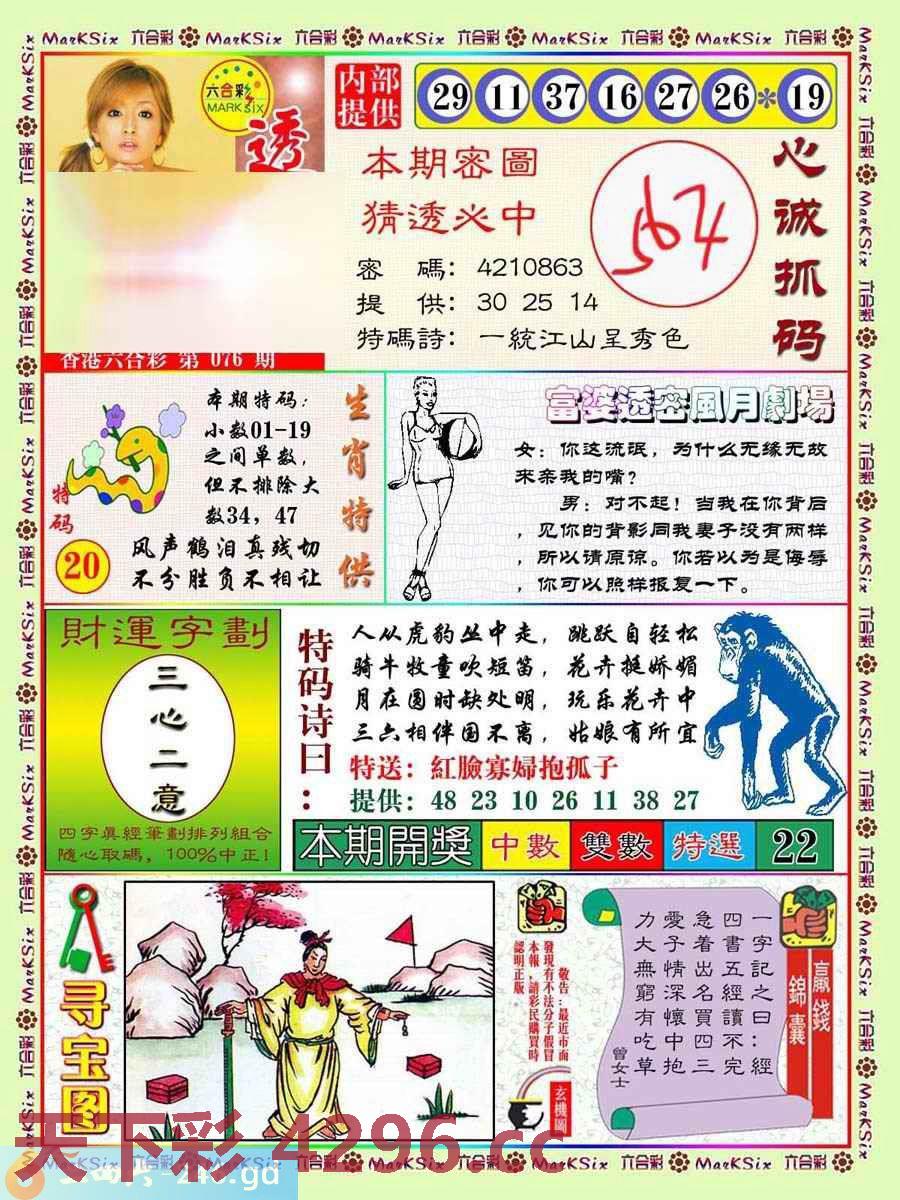 MarKSix 六合彩 MarKSix 六合彩 MarKSix 六合彩 MarKSix 六合彩 MarKSix 六合彩
六合彩
MARK SIX
透
香港六合彩 第 076 期
内部
提供
29 11 37 16 27 26 * 19
本期密圖
猜透必中
密 碼: 4210863
提 供: 30 25 14
特碼詩: 一統江山呈秀色
567
心诚抓码
特码
20
本期特码:
小数01-19
之间单数,
但不排除大
数34, 47
风声鹤泪真残切
不分胜负不相让
生肖特供
富婆透密風月劇場
女: 你这流氓, 为什么无缘无故
来亲我的嘴?
男: 对不起! 当我在你背后
, 见你的背影同我妻子没有两样
, 所以请原谅。你若以为是侮辱
, 你可以照样报复一下。
財運字劃
三心二意
四字真經筆劃排列組合
隨心取碼, 100%中正!
特码诗曰:
人从虎豹丛中走, 跳跃自轻松
骑牛牧童吹短笛, 花卉挺娇媚
月在圆时缺处明, 玩乐花卉中
三六相伴国不离, 姑娘有所宜
特送: 紅臉寡婦抱孤子
提供: 48 23 10 26 11 38 27
本期開獎 中數 雙數 特選 22
寻宝图
敬告:最近市面
發現有不法分子假冒
本報,請彩民購買時
認明正版。
玄機圖
贏錢
錦囊
一字記之曰:經
四書五經讀不完
急着出名買四三
愛子情深懷中抱
力大無窮有吃草
曾女士
天下彩 4296.cc
MarKSix 六合彩 MarKSix 六合彩 MarKSix 六合彩 MarKSix 六合彩